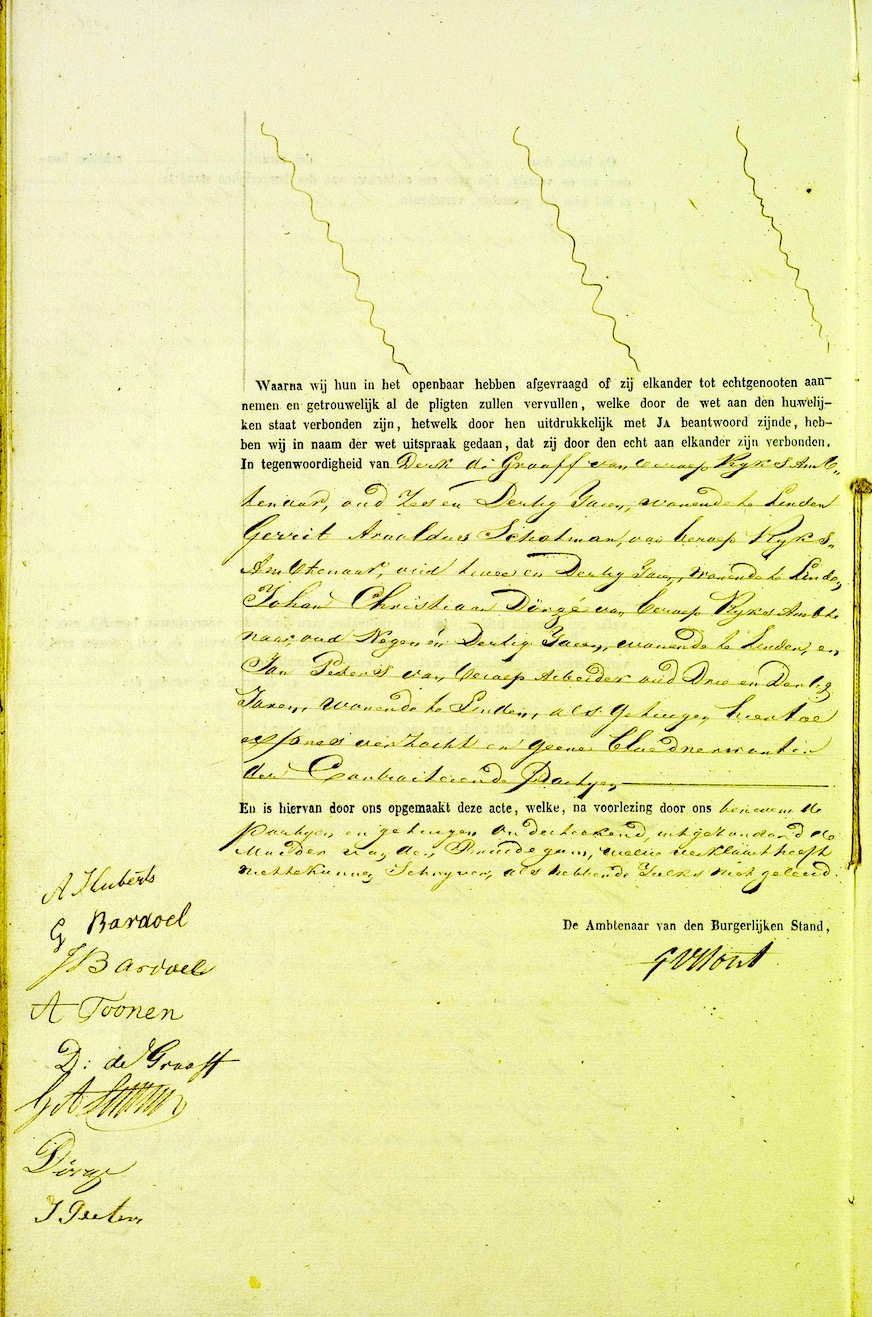 Waarna wij hun in het openbaar hebben afgevraagd of zij elkander tot echtgenooten aan-
nemen en getrouwelijk al de pligten zullen vervullen, welke door de wet aan den huwelij-
ken staat verbonden zijn, hetwelk door hen uitdrukkelijk met JA beantwoord zijnde, heb-
ben wij in naam der wet uitspraak gedaan, dat zij door den echt aan elkander zijn verbonden.
In tegenwoordigheid van Derk de Graaff van beroep Ryks Amb„
tenaar, oud Zes en Dertig Jaren, wonende te Linden
Gerrit Arnoldus Scholman, van beroep Ryks„
Ambtenaar, oud twee en Dertig Jaren, wonende te Linden,
Johan Christiaan Dörgé van beroep Ryks Ambte
naar, oud Negen én Dertig Jaren, wonende te Linden, en
Jan Peters van beroep Arbeider oud Drie en Dertig
Jaren, wonende te Linden, als getuigen hiertoe
expres verzocht en geene bloedverwanten
der Contracteerende Partyen
En is hiervan door ons opgemaakt deze acte, welke, na voorlezing door ons benevens de
Partyen en getuigen onderteekend, uitgezonderd de
Moeder van den Bruidegom, welke verklaart heeft
niet te kunnen Schryven, als hebbende Zulks niet geleerd.
A Huberts
G Bardoel
De Ambtenaar van den Burgerlijken Stand,
J Bardoel
A Toonen
D: de Graaff
G A
Dörgé
J Peeters